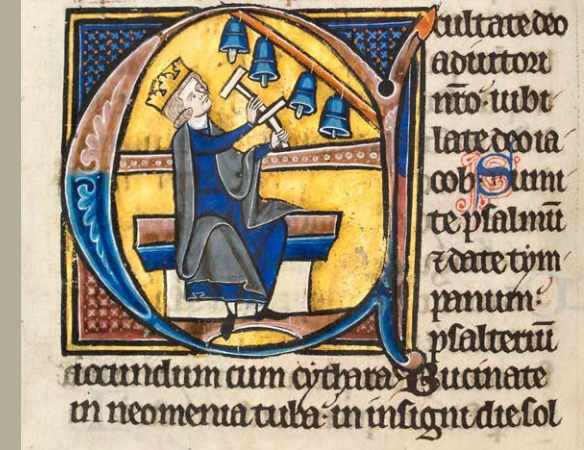 Exultate deo
adiutori
nr̄o· iubi
late deo ia
cob Sumi
te psalmū
⁊ date tym
panum:
psalteriū
iocundum cum cythara· Bucinate
in neomenia tuba· in insigni die sol